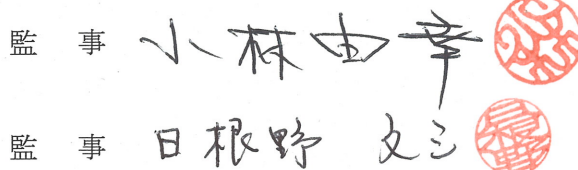 監事 小林由幸
監事 日根野 文三